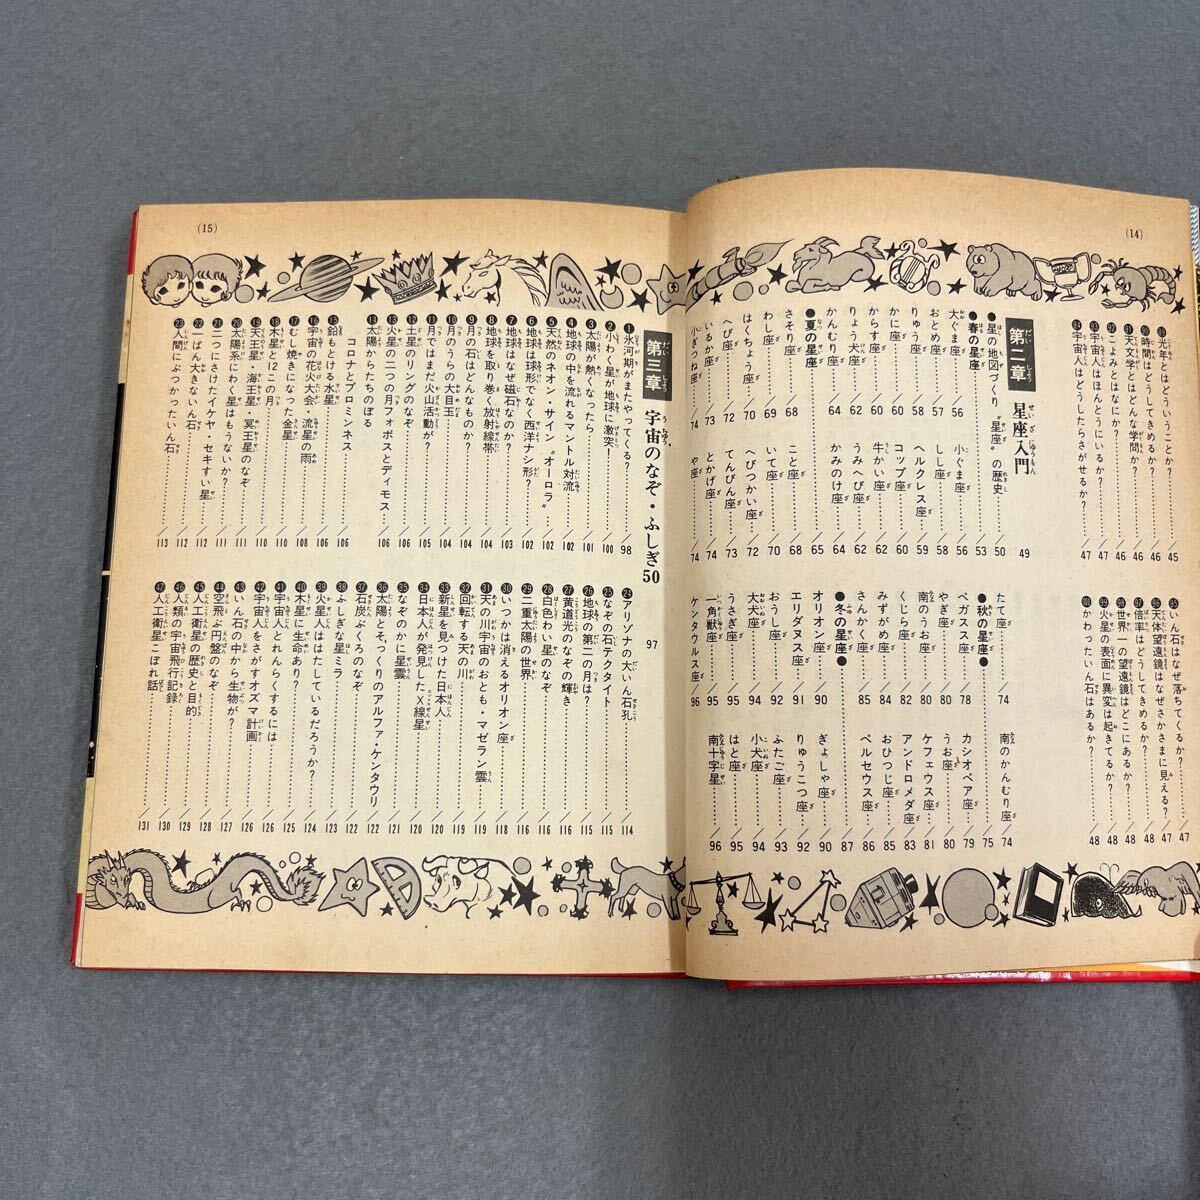 (14)
光年とはどういうことか?……45
時間はどうしてきめるか?……46
天文学とはどんな学問か?……46
こよみとはなにか?……47
宇宙人はほんとうにいるか?……47
宇宙人はどうしたらさがせるか?……47
いん石はなぜ落ちてくるか?……47
天体望遠鏡はなぜさかさまに見える?……47
倍率はどうしてきめるか?……48
世界一の望遠鏡はどこにあるか?……48
火星の表面に異変は起きてるか?……48
かわった いん石はあるか?……48
第二章 星座入門……49
●星の地図づくり“星座”の歴史……50
●春の星座……53
大ぐま座……56
おとめ座……57
りゅう座……58
かに座……60
からす座……60
りょう犬座……62
かんむり座……64
小ぐま座……56
しし座……58
ヘルクレス座……59
コップ座……60
牛かい座……62
うみへび座……62
かみのけ座……64
●夏の星座……65
さそり座……68
わし座……69
はくちょう座……70
へび座……72
いるか座……73
小ぎつね座……74
こと座……68
いて座……70
へびつかい座……72
てんびん座……73
とかげ座……74
や座……74
たて座……74
南のかんむり座……74
●秋の星座●……75
ペガスス座……78
やぎ座……80
南のうお座……80
くじら座……82
みずがめ座……84
さんかく座……85
カシオペア座……79
うお座……80
ケフェウス座……81
アンドロメダ座……83
おひつじ座……85
ペルセウス座……86
●冬の星座●……87
オリオン座……90
エリダヌス座……91
おうし座……92
大犬座……94
うさぎ座……94
一角獣座……95
ケンタウルス座……96
ぎょしゃ座……90
りゅうこつ座……92
ふたご座……93
小犬座……94
はと座……95
南十字星……96
(15)
第三章 宇宙のなぞ・ふしぎ50……97
1 氷河期がまたやってくる?……98
2 小わく星が地球に激突!……100
3 太陽が熱くなったら……101
4 地球の中を流れるマントル対流……102
5 天然のネオン・サイン“オーロラ”……102
6 地球は球形でなく西洋ナシ形?……102
7 地球はなぜ磁石なのか?……103
8 地球を取り巻く放射線帯……104
9 月の石はどんなものか?……104
10 月のうらの大目玉……104
11 月ではまだ火山活動が?……104
12 土星のリングのなぞ……105
13 火星の二つの月フォボスとディモス……106
14 太陽からたちのぼる
コロナとプロミネンス……106
15 鉛もとける水星……106
16 宇宙の花火大会・流星の雨……108
17 むし焼きになった金星……108
18 木星と12この月……110
19 天王星・海王星・冥王星のなぞ……110
20 太陽系にわく星はもうないか?……110
21 二つにさけたイケヤ・セキすい星……111
22 一ばん大きないん石……112
23 人間にぶつかったいん石……113
24 アリゾナの大いん石孔……114
25 なぞの石テクタイト……115
26 地球の第二の月は?……115
27 黄道光のなぞの輝き……116
28 白色わい星のなぞ……116
29 二重太陽の世界……116
30 いつかは消えるオリオン座……118
31 天の川宇宙のおとも・マゼラン雲……119
32 回転する天の川……119
33 新星を見つけた日本人……120
34 日本人が発見したX線星……120
35 なぞのかに星雲……121
36 太陽とそっくりのアルファ・ケンタウリ……122
37 石炭ぶくろのなぞ……122
38 ふしぎな星ミラ……123
39 火星人ははたしているだろうか?……124
40 木星に生命あり?……125
41 宇宙人とれんらくするには……126
42 宇宙人をさがすオズマ計画……126
43 いん石の中から生物が?……127
44 空飛ぶ円盤のなぞ……128
45 人工衛星の歴史と目的……129
46 人類の宇宙飛行記録……130
47 人工衛星こぼれ話……131